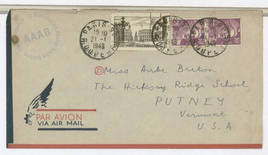 AAAB
PARIS
21-1
1948
Miss Aube Breton
The Hickory Ridge School
PUTNEY
Vermont
U.S.A
PAR AVION
VIA AIR MAIL